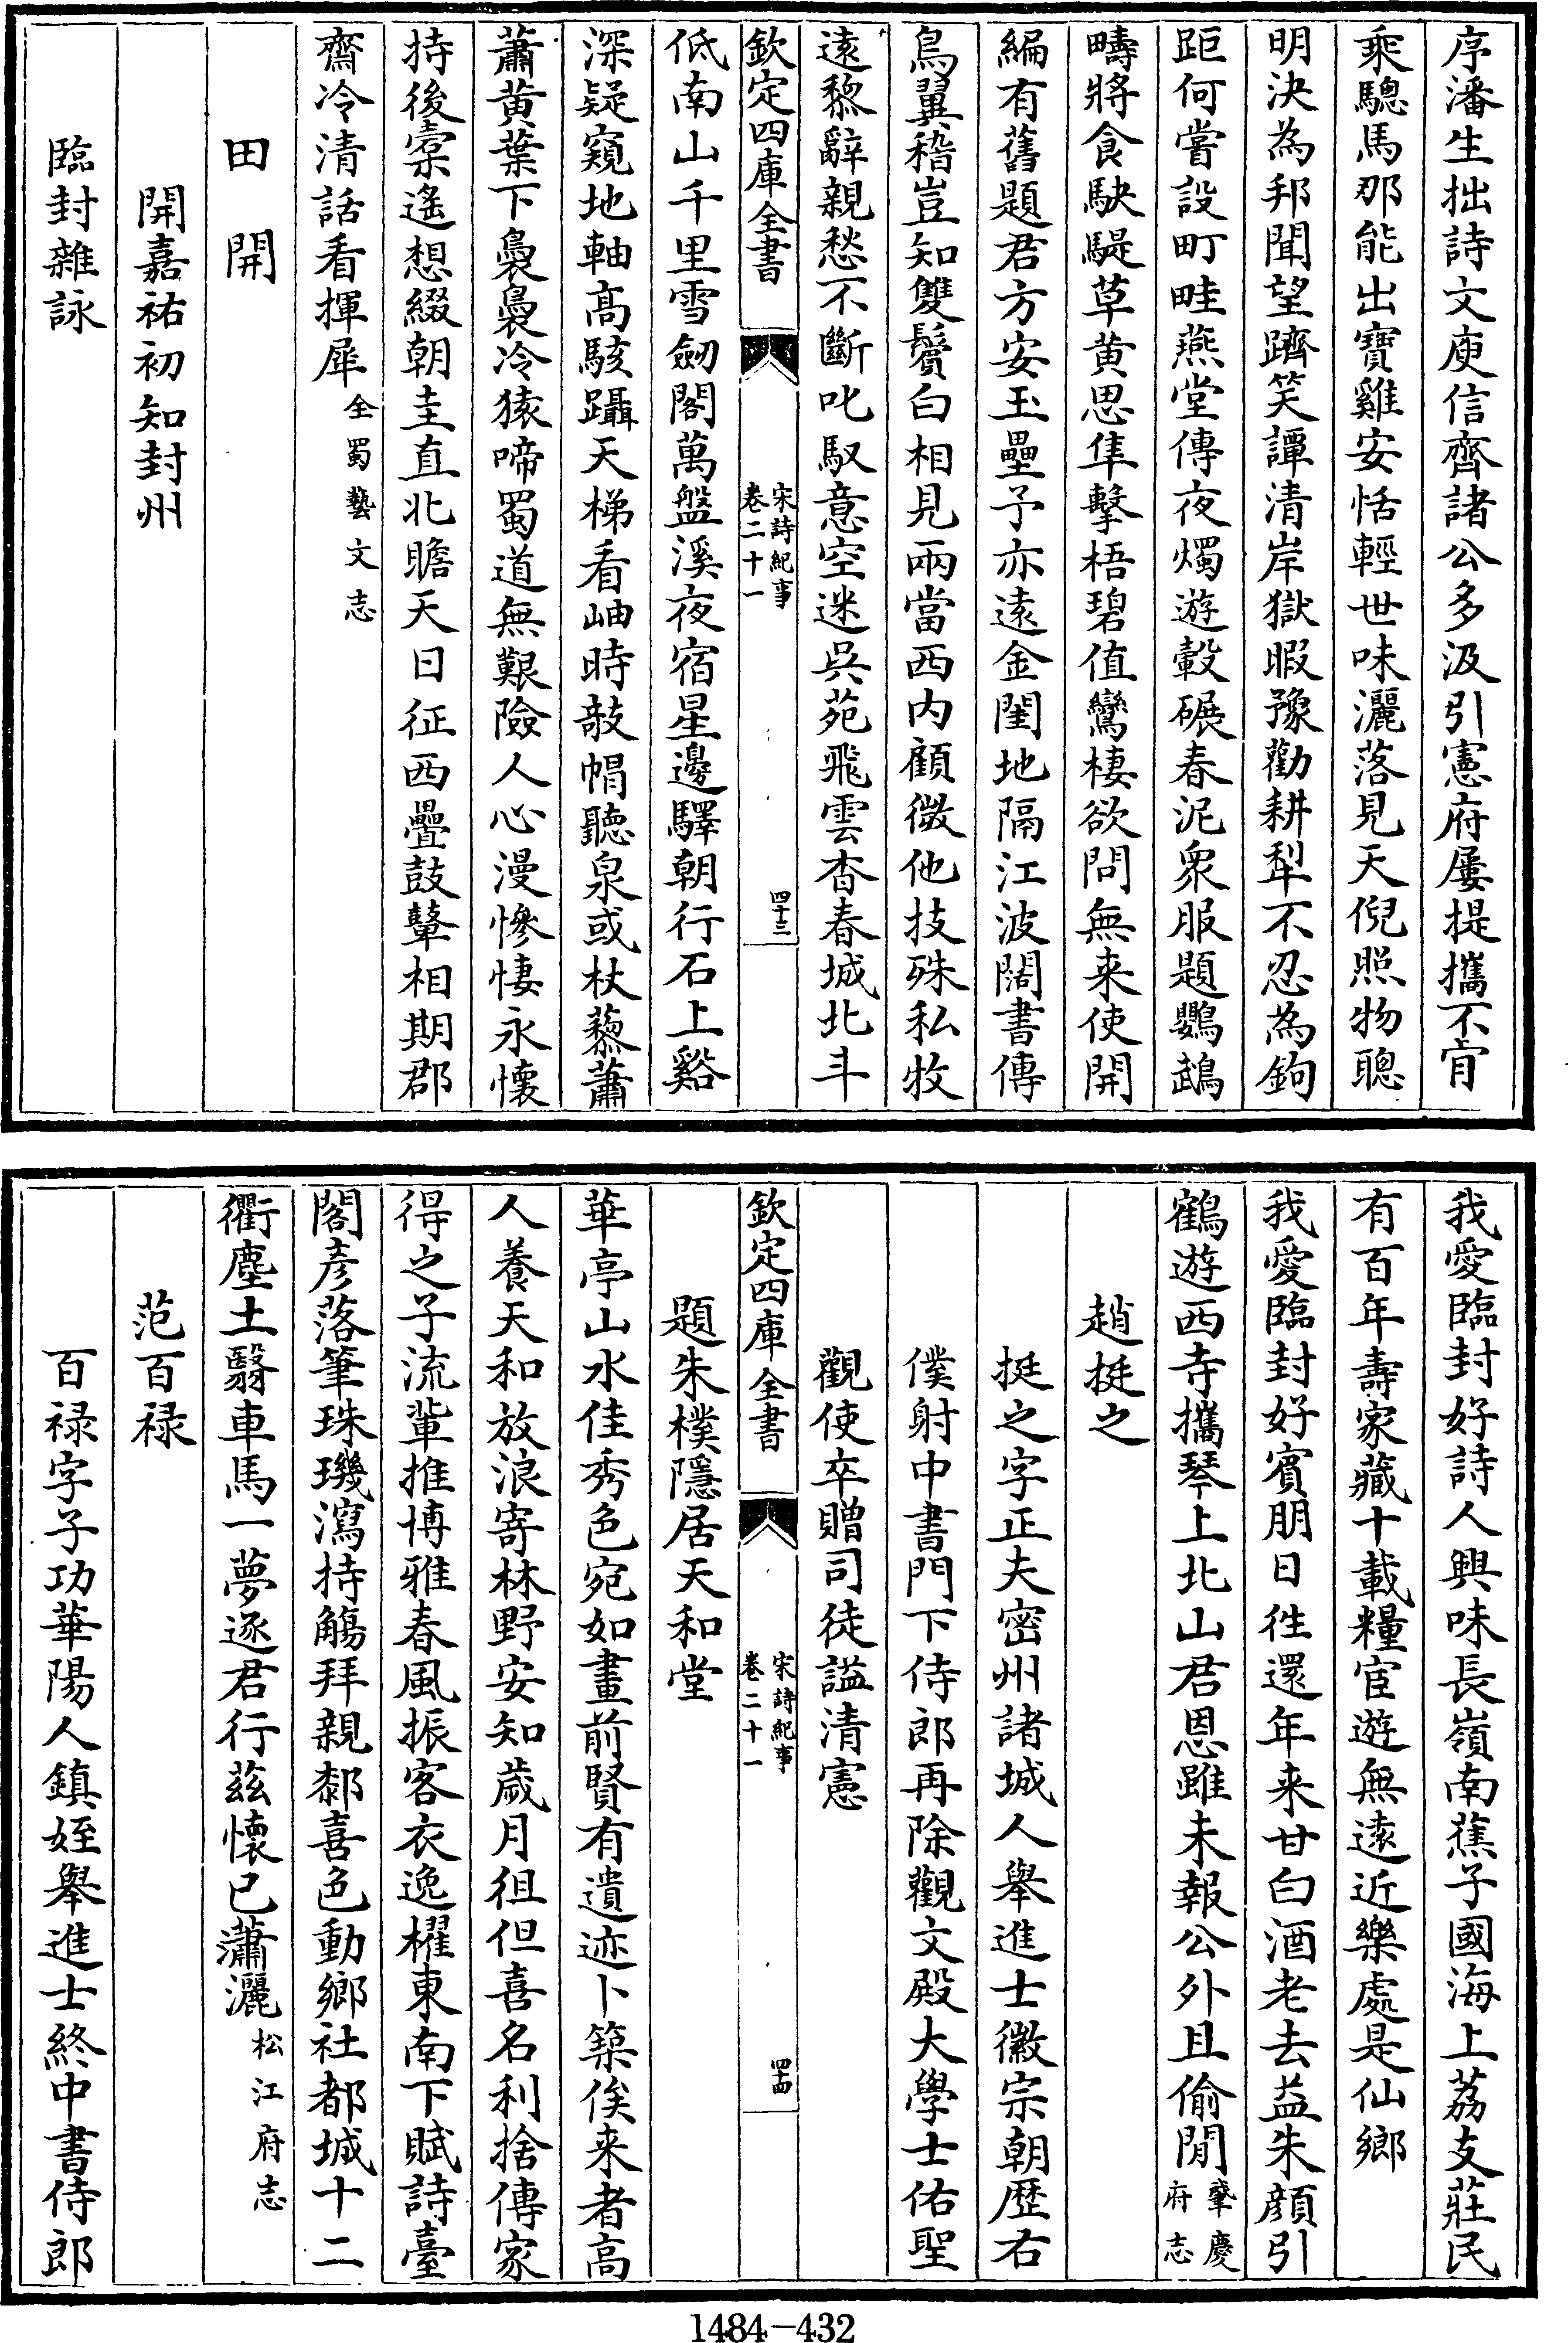 序潘生拙詩文庾信齊諸公多汲引憲府屢提攜不肯
乘驄馬那能出寶雞安恬輕世味灑落見天倪照物聰
明決為邦聞望躋笑譚清岸獄暇豫勸耕犁不忍為鉤
距何嘗設町畦燕堂傳夜燭遊轂碾春泥衆服題鸚鵡
疇將食駃騠草黄思隼擊梧碧值鸞棲欲問無来使開
編有舊題君方安玉壘予亦遠金閨地隔江波闊書傳
鳥翼稽豈知雙鬢白相見兩當西内顧微他技殊私牧
遠黎辭親愁不斷叱馭意空迷吳苑飛雲杳春城北斗
欽定四庫全書
宋詩紀事
卷二十一
四十三
低南山千里雪劒閣萬盤溪夜宿星邊驛朝行石上谿
深疑窺地軸高駭躡天梯看岫時敧㡌聽泉或杖藜蕭
蕭黄葉下裊裊冷猿啼蜀道無艱險人心漫慘悽永懷
持後槖遙想綴朝圭直北瞻天日征西疊鼓鼙相期郡
齋冷清話看揮犀全蜀藝文志
田開
開嘉祐初知封州
臨封雜詠
我愛臨封好詩人興味長嶺南蕉子國海上荔支莊民
有百年壽家藏十載糧宦遊無遠近樂處是仙鄉
我愛臨封好賓朋日徃還年来甘白酒老去益朱顔引
鶴遊西寺攜琴上北山君恩雖未報公外且偷閒肇慶
府志
趙挺之
挺之字正夫密州諸城人舉進士徽宗朝歴右
僕射中書門下侍郎再除觀文殿大學士佑聖
觀使卒贈司徒謚清憲
欽定四庫全書
宋詩紀事
卷二十一
四十四
題朱樸隱居天和堂
華亭山水佳秀色宛如畫前賢有遺迹卜築俟来者高
人養天和放浪寄林野安知歲月徂但喜名利捨傳家
得之子流輩推博雅春風振客衣逸櫂東南下賦詩臺
閣彥落筆珠璣瀉持觴拜親鄰喜色動鄉社都城十二
衢塵土翳車馬一夢逐君行茲懷已瀟灑松江府志
范百禄
百禄字子功華陽人鎮姪舉進士終中書侍郎
1484-432